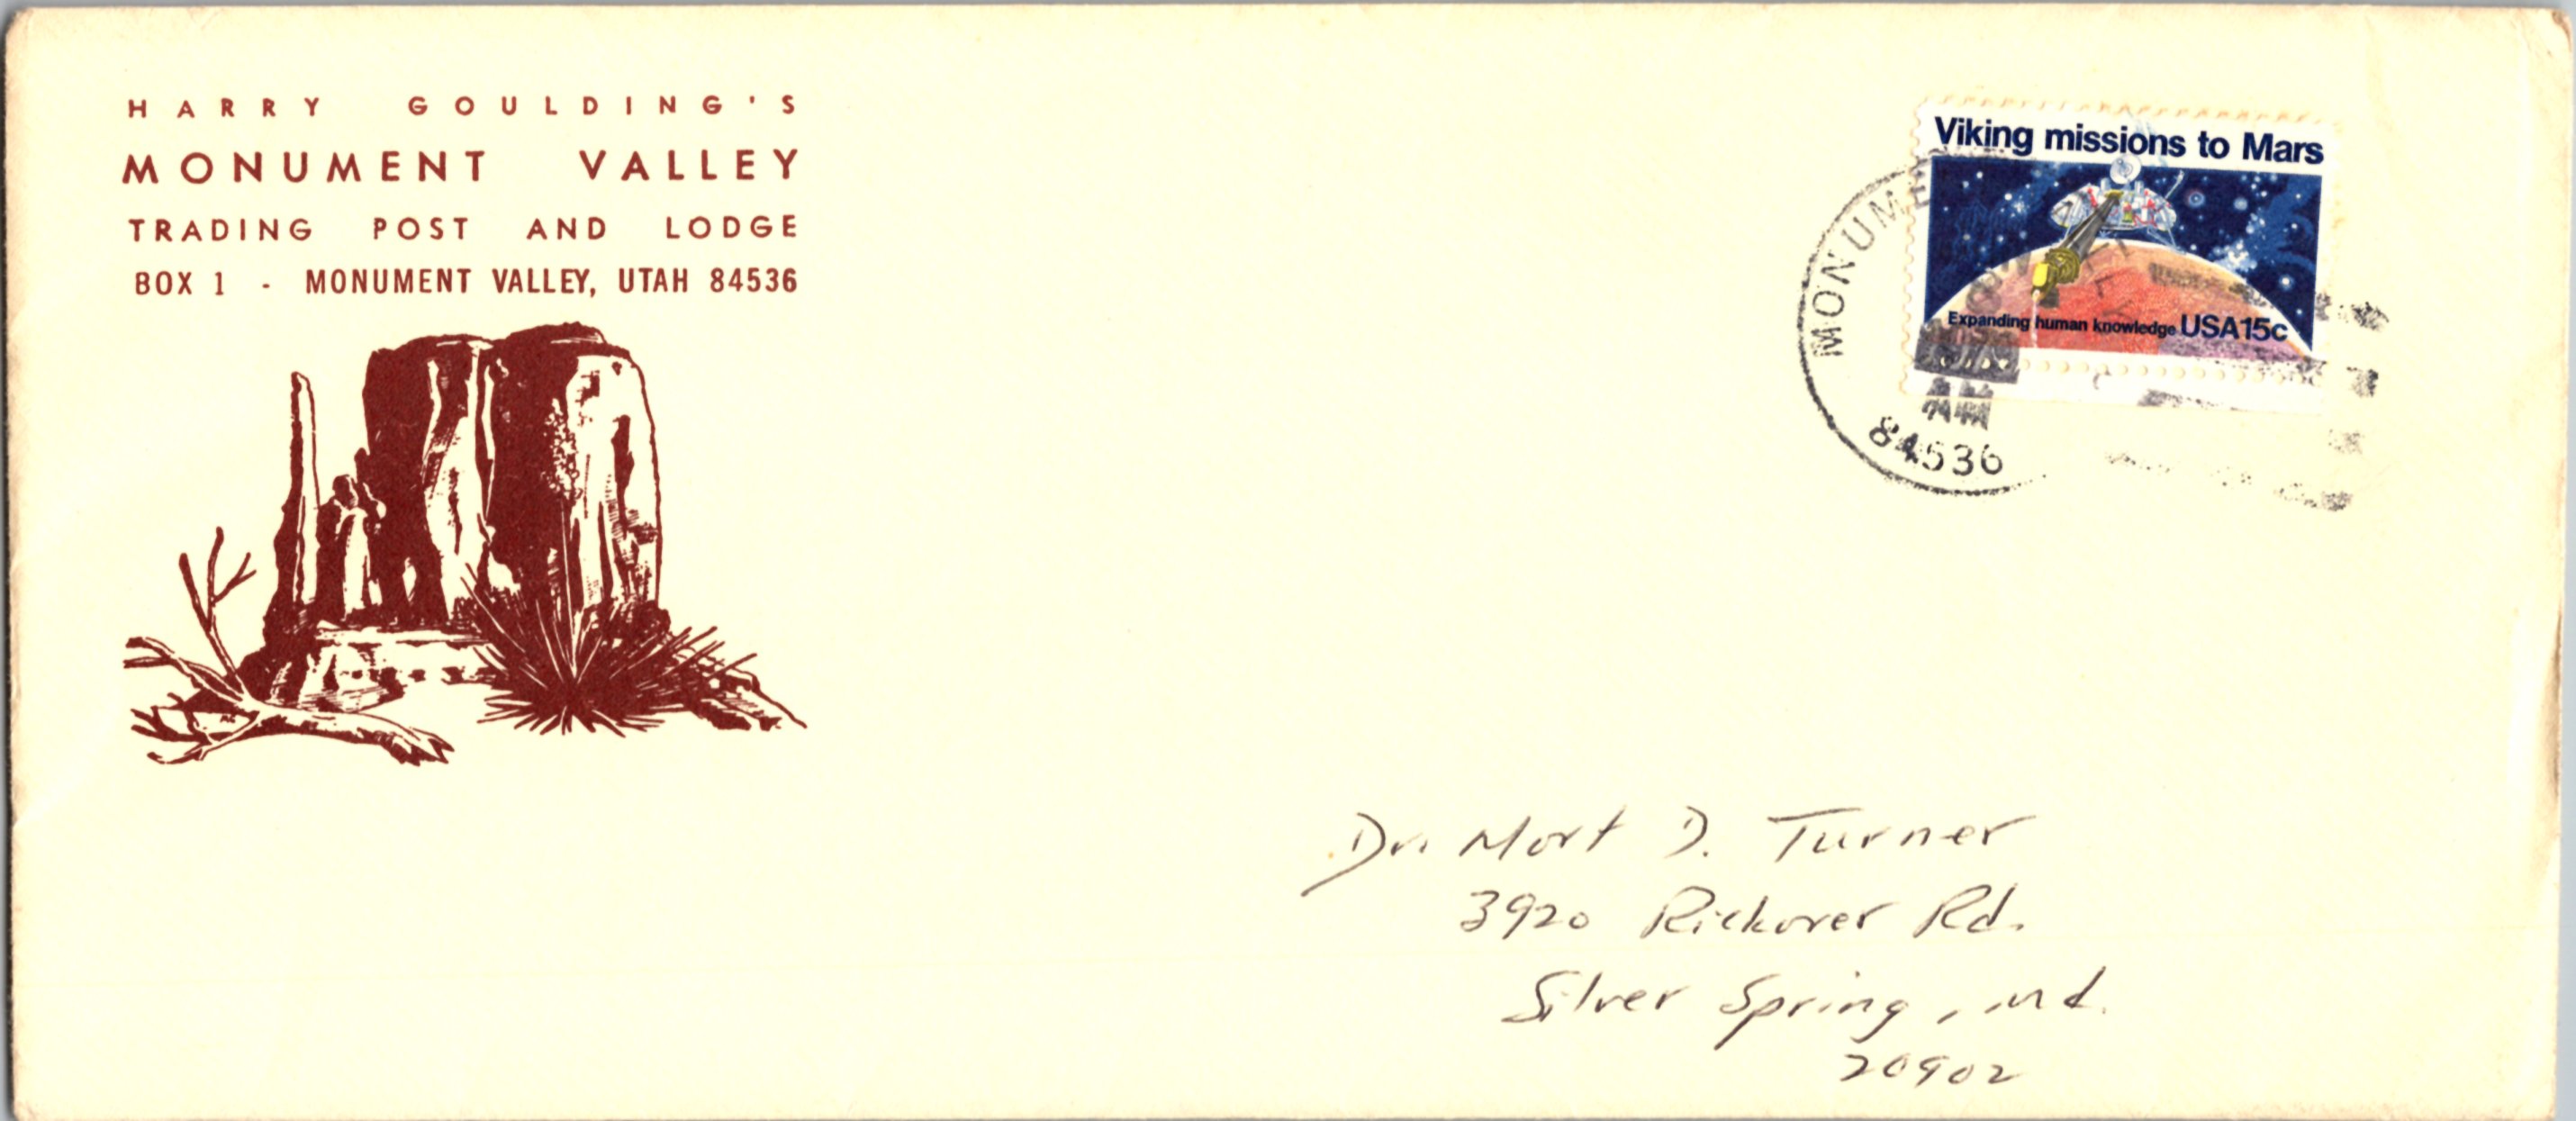 HARRY GOULDING'S
MONUMENT VALLEY
TRADING POST AND LODGE
BOX 1 - MONUMENT VALLEY, UTAH 84536
Viking missions to Mars
Expanding human knowledge USA 15c
MONUMENT VALLEY
84536
Dr. Mort D. Turner
3920 Rickover Rd.
Silver Spring, Md.
20902